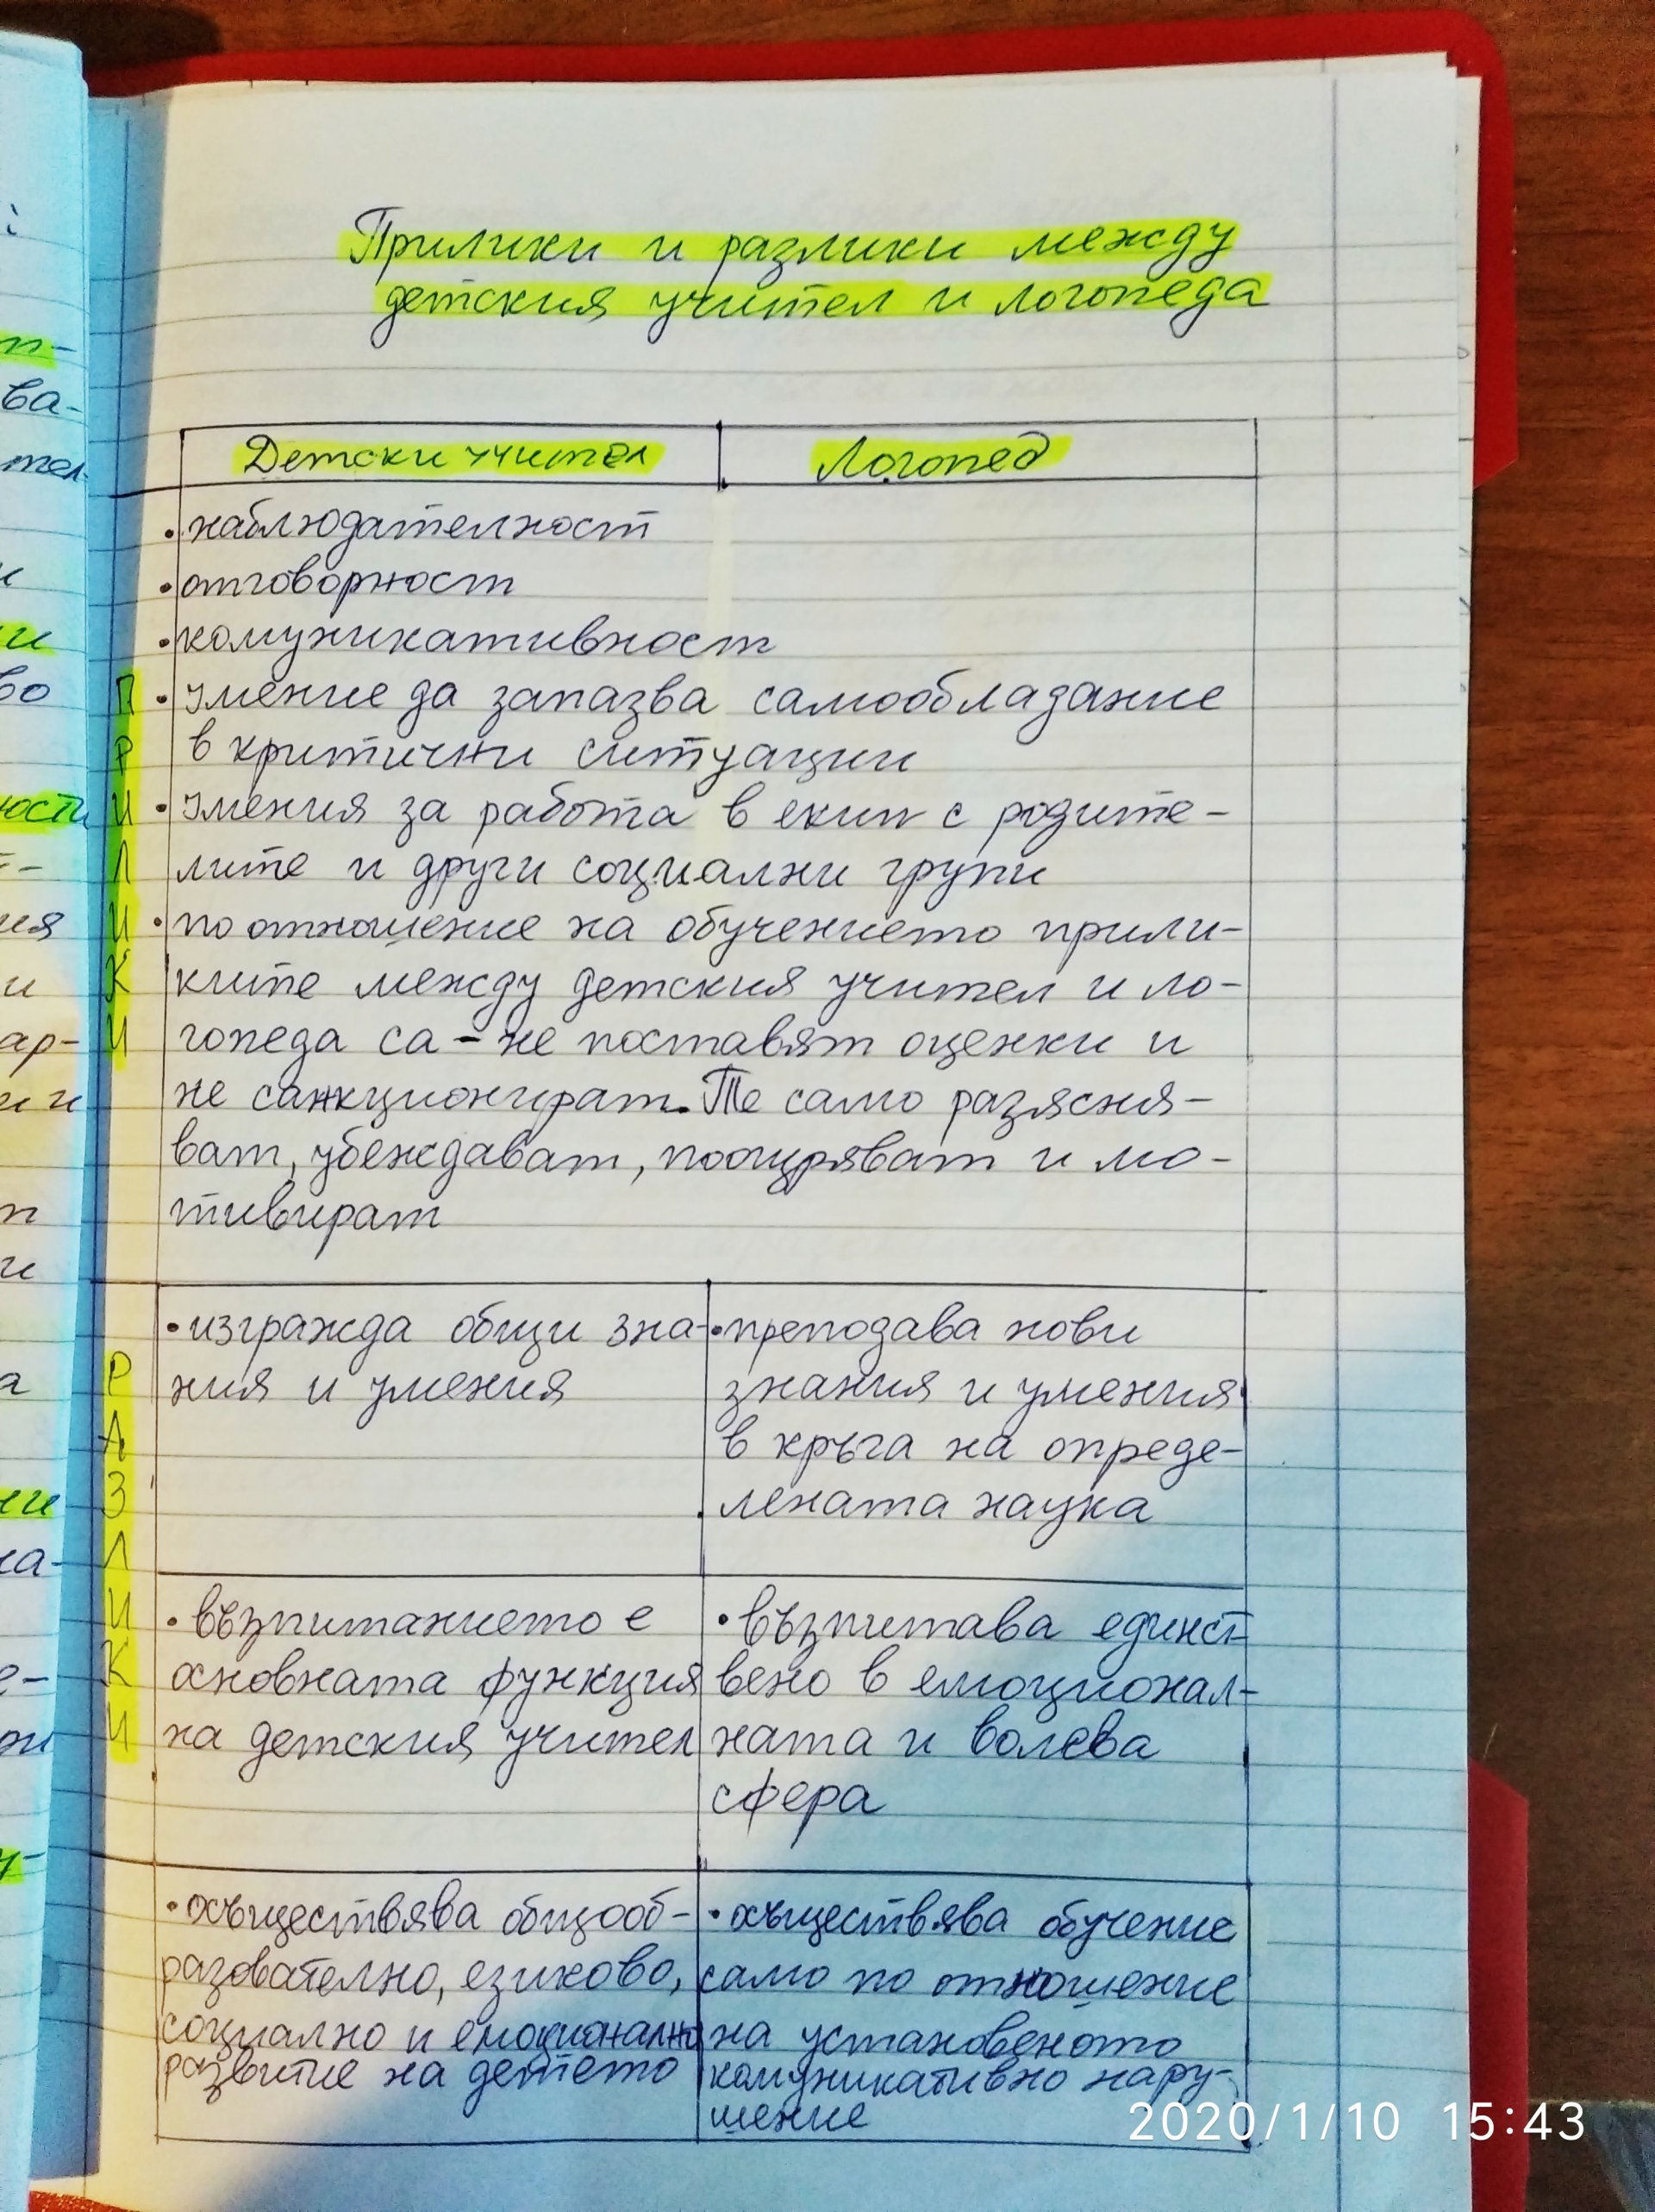 Прилики и разлики между
детския учител и логопеда
Детски учител
Логопед
ПРИЛИКИ
• наблюдателност
• отговорност
• комуникативност
• Умение да запазва самообладание
в критични ситуации
• Умения за работа в екип с родите-
лите и други социални групи
• по отношение на обучението прили-
ките между детския учител и ло-
гопеда са - не поставят оценки и
не санкционират. Те само разясня-
ват, убеждават, поощряват и мо-
тивират
РАЗЛИКИ
• изгражда общи зна-
ния и умения
• преподава нови
знания и умения
в кръга на опреде-
лената наука
• възпитанието е
основната функция
на детския учител
• възпитава единст-
вено в емоционал-
ната и волева
сфера
• осъществява общооб-
разователно, езиково,
социално и емоционално
развитие на детето
• осъществява обучение
само по отношение
на установеното
комуникативно нару-
шение
2020/1/10 15:43